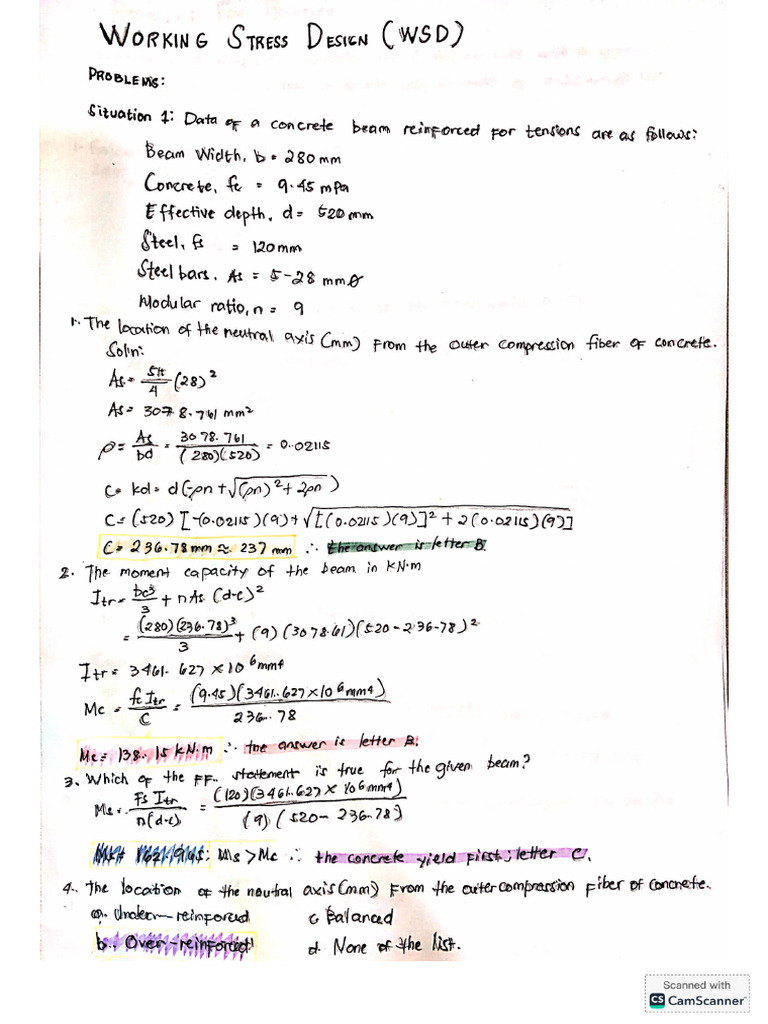 WORKING STRESS DESIGN (WSD)
PROBLEMS:
Situation 1: Data of a concrete beam reinforced for tensions are as follows:
Beam Width, b = 280 mm
Concrete, fc = 9.45 mPa
Effective depth, d = 520 mm
Steel, fs = 120 mm
Steel bars, As = 5-28 mmØ
Modular ratio, n = 9
1. The location of the neutral axis (mm) from the outer compression fiber of concrete.
Soln:
As = 5π/4 (28)²
As = 3078.761 mm²
ρ = As/bd = 3078.761/(280)(520) = 0.02115
c = kd = d(-ρn + √(ρn)² + 2ρn)
c = (520) [-(0.02115)(9) + √[(0.02115)(9)]² + 2(0.02115)(9)]
c = 236.78 mm ≈ 237 mm ∴ the answer is letter B.
2. The moment capacity of the beam in kN·m
Itr = bc³/3 + nAs (d-c)²
= (280)(236.78)³/3 + (9)(3078.61)(520-236-78)²
Itr = 3461.627 × 10⁶ mm⁴
Mc = fc Itr/c = (9.45)(3461.627 × 10⁶ mm⁴)/236.78
Mc = 138.15 kN·m ∴ the answer is letter B.
3. Which of the FF. statement is true for the given beam?
Ms = Fs Itr/n(d-c) = (120)(3461.627 × 10⁶ mm⁴)/(9)(520-236.78)
Ms > Mc ∴ the concrete yield first; letter C.
4. The location of the neutral axis (mm) from the outer compression fiber of concrete.
a. Under-reinforced c. Balanced
b. Over-reinforced d. None of the list.
Scanned with
CS CamScanner